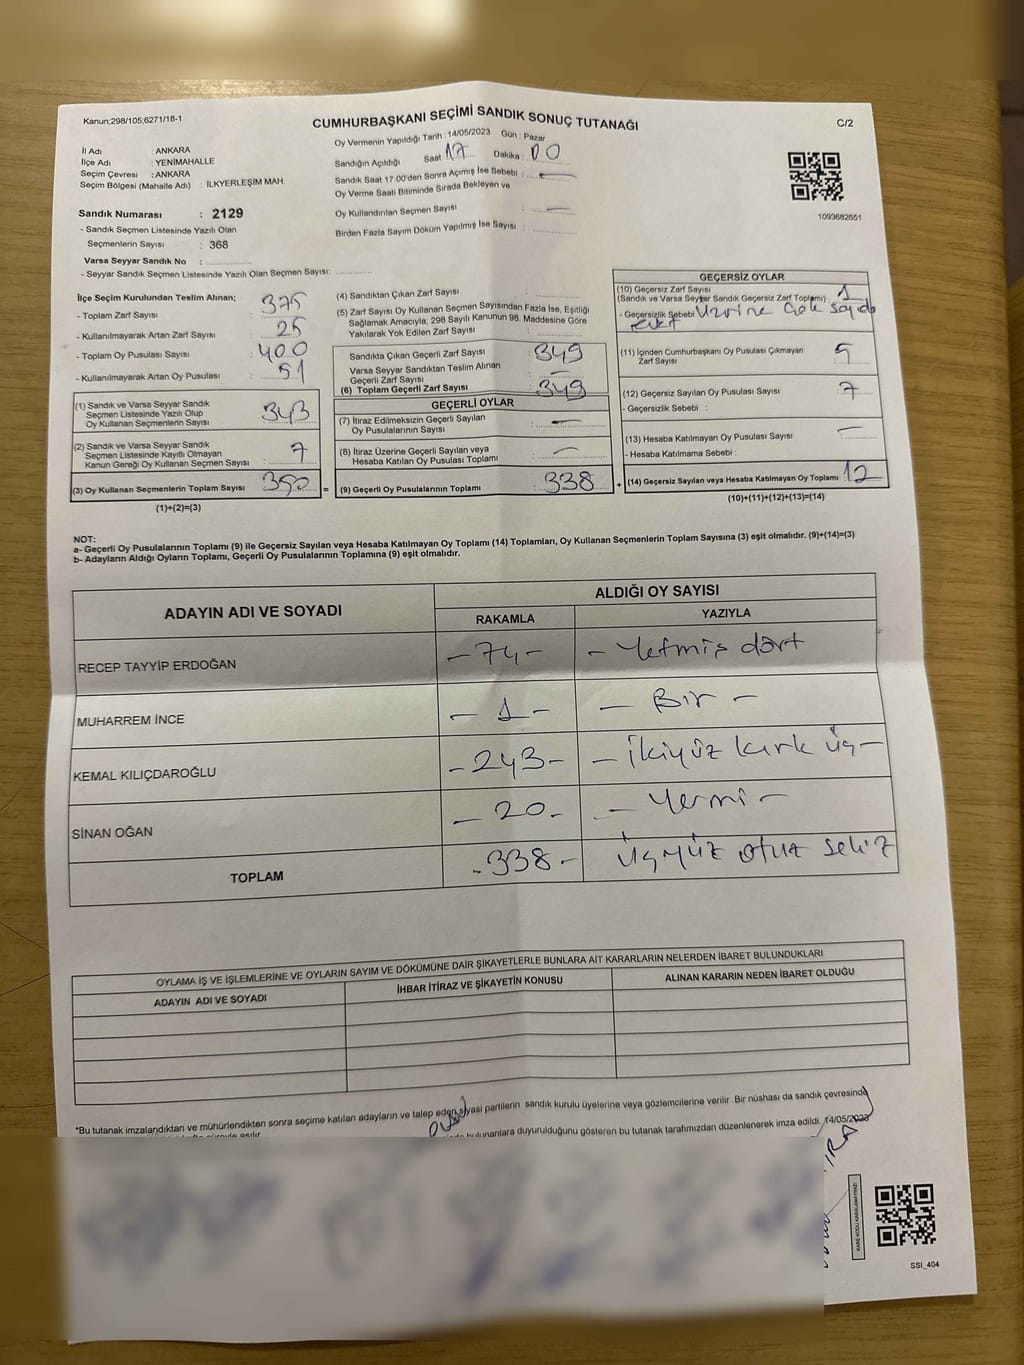 Kanun;298/105,6271/18-1
CUMHURBAŞKANI SEÇİMİ SANDIK SONUÇ TUTANAĞI
C/2
İl Adı : ANKARA
İlçe Adı : YENİMAHALLE
Seçim Çevresi : ANKARA
Seçim Bölgesi (Mahalle Adı) : İLKYERLEŞİM MAH.
Sandık Numarası : 2129
- Sandık Seçmen Listesinde Yazılı Olan
Seçmenlerin Sayısı : 368
Varsa Seyyar Sandık No :
- Seyyar Sandık Seçmen Listesinde Yazılı Olan Seçmen Sayısı:
Oy Vermenin Yapıldığı Tarih : 14/05/2023 Gün : Pazar
Sandığın Açıldığı Saat 17 Dakika : 00
Sandık Saat 17:00'den Sonra Açımış İse Sebebi : —
Oy Verme Saati Bitiminde Sırada Bekleyen ve
Oy Kullandırılan Seçmen Sayısı : —
Birden Fazla Sayım Döküm Yapılmış İse Sayısı :
1093682651
İlçe Seçim Kurulundan Teslim Alınan;
- Toplam Zarf Sayısı : 375
- Kullanılmayarak Artan Zarf Sayısı : 25
- Toplam Oy Pusulası Sayısı : 400
- Kullanılmayarak Artan Oy Pusulası : 51
(1) Sandık ve Varsa Seyyar Sandık
Seçmen Listesinde Yazılı Olup
Oy Kullanan Seçmenlerin Sayısı : 343
(2) Sandık ve Varsa Seyyar Sandık
Seçmen Listesinde Kayıtlı Olmayan
Kanun Gereği Oy Kullanan Seçmen Sayısı : 7
(3) Oy Kullanan Seçmenlerin Toplam Sayısı : 350 =
(1)+(2)=(3)
(4) Sandıktan Çıkan Zarf Sayısı :
(5) Zarf Sayısı Oy Kullanan Seçmen Sayısından Fazla İse, Eşitliği
Sağlamak Amacıyla, 298 Sayılı Kanunun 98. Maddesine Göre
Yakılarak Yok Edilen Zarf Sayısı :
Sandıkta Çıkan Geçerli Zarf Sayısı : 349
Varsa Seyyar Sandıktan Teslim Alınan
Geçerli Zarf Sayısı : —
(6) Toplam Geçerli Zarf Sayısı : 349
GEÇERLİ OYLAR
(7) İtiraz Edilmeksizin Geçerli Sayılan
Oy Pusulalarının Sayısı : —
(8) İtiraz Üzerine Geçerli Sayılan veya
Hesaba Katılan Oy Pusulası Toplamı : —
(9) Geçerli Oy Pusulalarının Toplamı : 338 +
GEÇERSİZ OYLAR
(10) Geçersiz Zarf Sayısı
(Sandık ve Varsa Seyyar Sandık Geçersiz Zarf Toplamı) : 1
- Geçersizlik Sebebi Üzerine çok sayıda
(11) İçinden Cumhurbaşkanı Oy Pusulası Çıkmayan
Zarf Sayısı : 5
(12) Geçersiz Sayılan Oy Pusulası Sayısı : 7
- Geçersizlik Sebebi :
(13) Hesaba Katılmayan Oy Pusulası Sayısı : —
- Hesaba Katılmama Sebebi :
(14) Geçersiz Sayılan veya Hesaba Katılmayan Oy Toplamı : 12
(10)+(11)+(12)+(13)=(14)
NOT:
a- Geçerli Oy Pusulalarının Toplamı (9) ile Geçersiz Sayılan veya Hesaba Katılmayan Oy Toplamı (14) Toplamları, Oy Kullanan Seçmenlerin Toplam Sayısına (3) eşit olmalıdır. (9)+(14)=(3)
b- Adayların Aldığı Oyların Toplamı, Geçerli Oy Pusulalarının Toplamına (9) eşit olmalıdır.
ADAYIN ADI VE SOYADI
ALDIĞI OY SAYISI
RAKAMLA YAZIYLA
RECEP TAYYİP ERDOĞAN -74- - Yetmiş dört
MUHARREM İNCE - 1 - - Bir -
KEMAL KILIÇDAROĞLU -243- - İkiyüz kırk üç -
SİNAN OĞAN - 20 - - Yermi -
TOPLAM - 338 - Üçyüz otuz sekiz
OYLAMA İŞ VE İŞLEMLERİNE VE OYLARIN SAYIM VE DÖKÜMÜNE DAİR ŞİKAYETLERLE BUNLARA AİT KARARLARIN NELERDEN İBARET BULUNDUKLARI
ADAYIN ADI VE SOYADI İHBAR İTİRAZ VE ŞİKAYETİN KONUSU ALINAN KARARIN NEDEN İBARET OLDUĞU
*Bu tutanak imzalandıktan ve mühürlendikten sonra seçime katılan adayların ve talep eden siyasi partilerin sandık kurulu üyelerine veya gözlemcilerine verilir. Bir nüshası da sandık çevresinde
bulunanlara duyurulduğunu gösteren bu tutanak tarafımızdan düzenlenerek imza edildi. 14/05/2023
KARE KODU KARALAMAYINIZ!
SSI_404